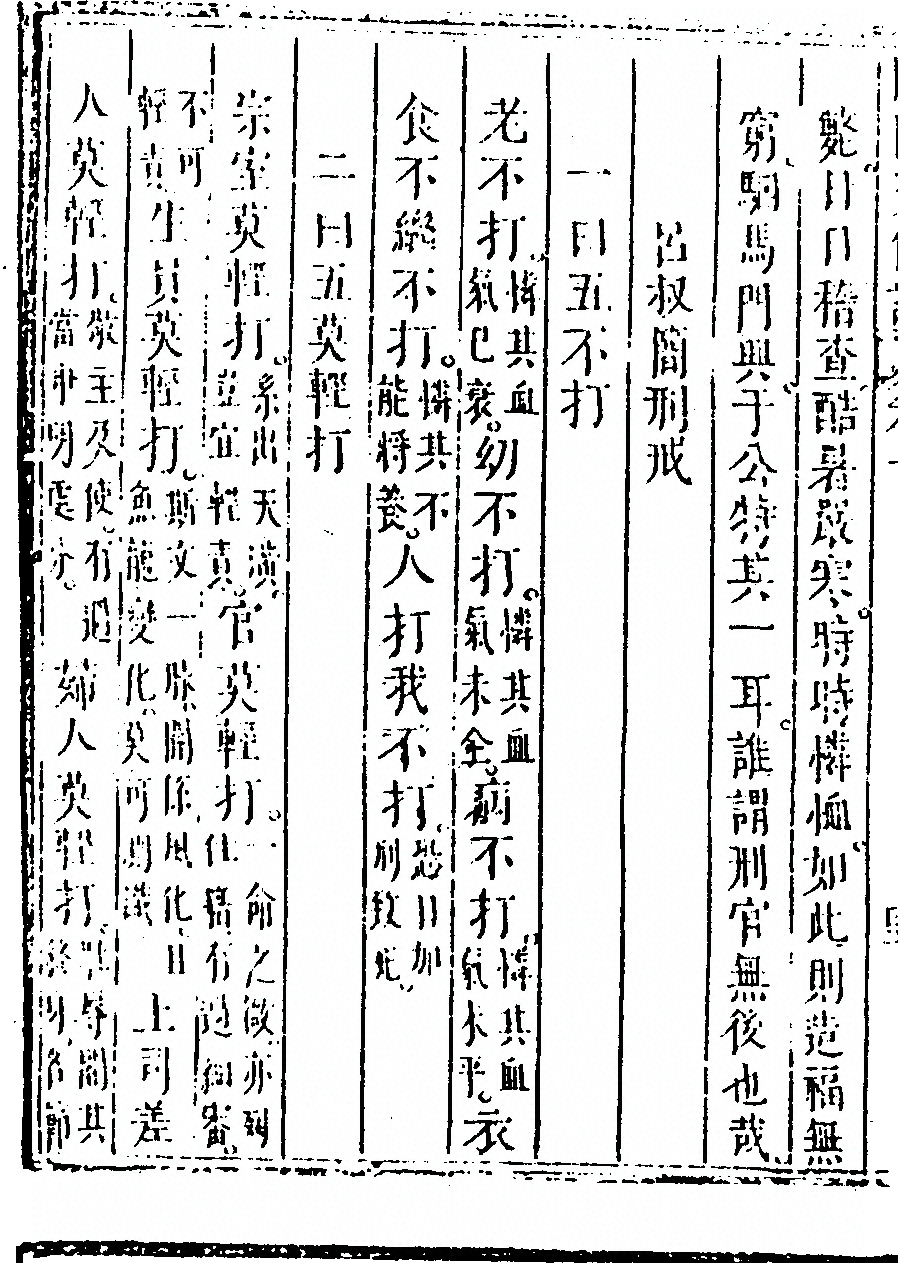 斃日日稽查酷暑嚴寒時時憐恤如此則造福無
窮駟馬門興于公特其一耳誰謂刑官無後也哉
呂叔簡刑戒
一曰五不打
老不打憐其血氣已衰幼不打憐其血氣未全病不打憐其血氣未平衣
食不繼不打憐其不能將養人打我不打恐日加刑致死
二曰五莫輕打
宗室莫輕打系出天潢豈宜輕責官莫輕打一命之微亦到仕籍有過細審
不可輕責生員莫輕打斯文一脉關係風化且魚龍變化莫可測識上司差
人莫輕打敬主及使有過當申明處分婦人莫輕打羞辱關其名節